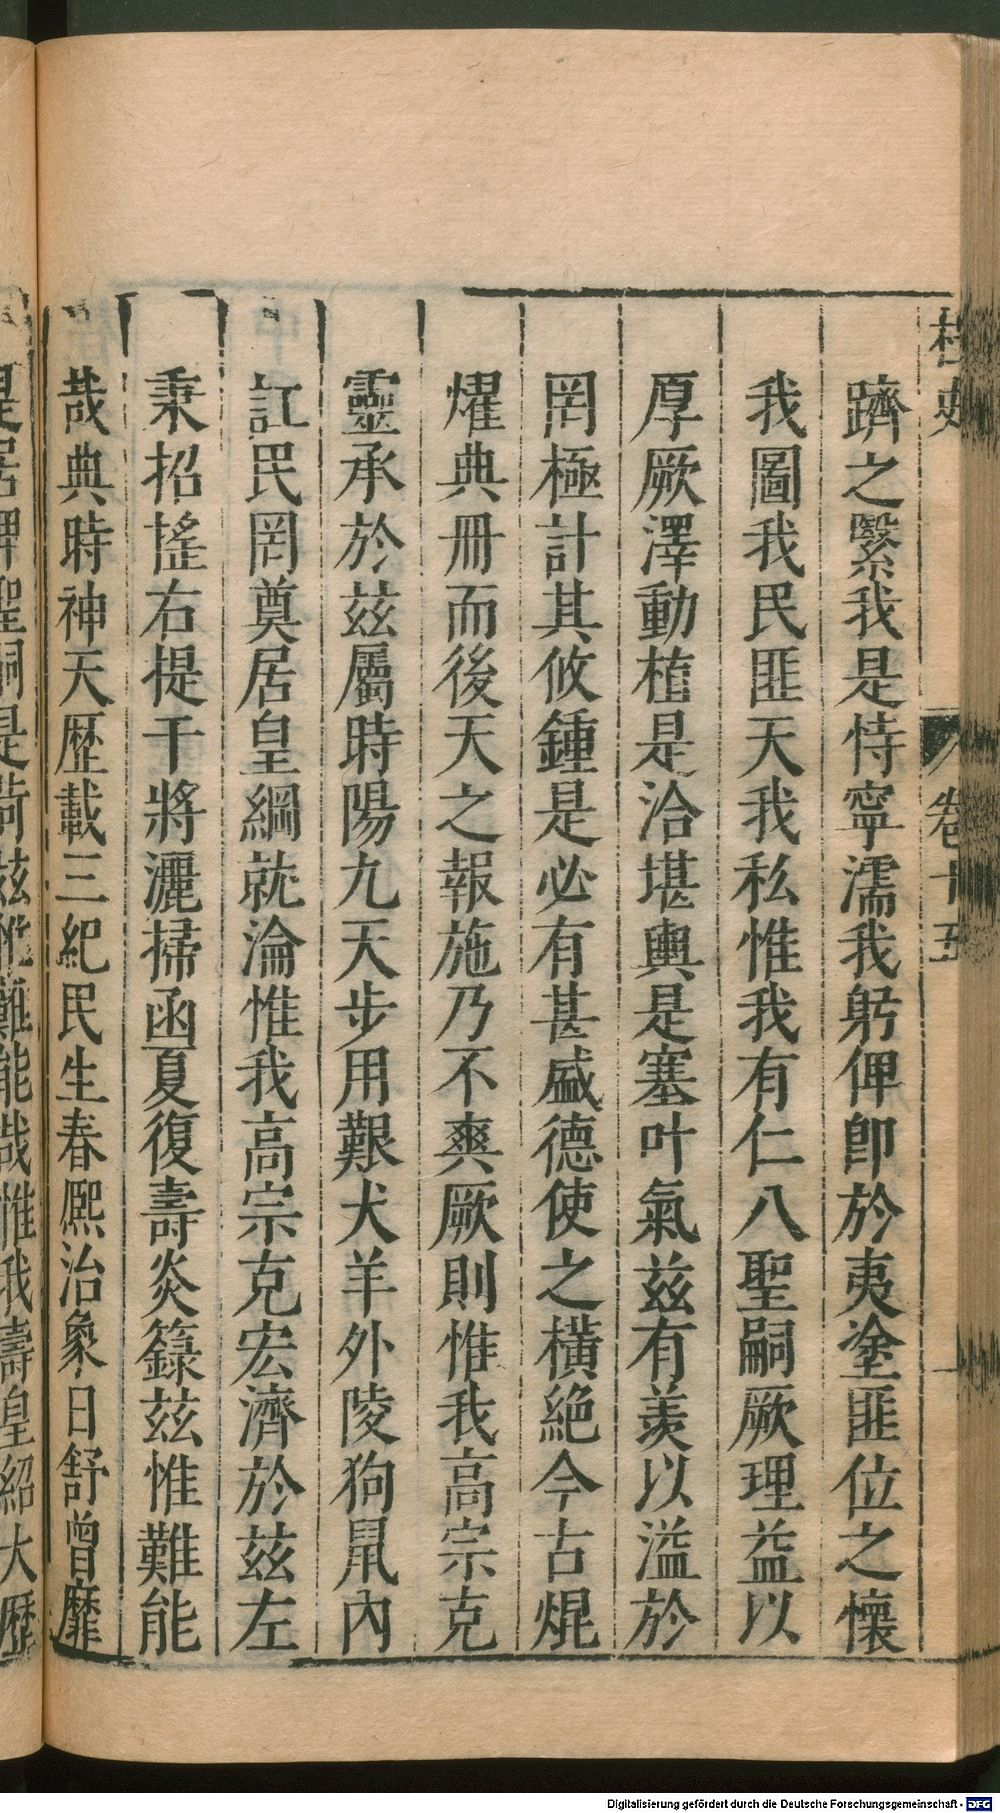 桯史
卷十五
躋之繄我是恃寧濡我躬俾卽於夷塗匪位之懷
我圖我民匪天我私惟我有仁八聖嗣厥理益以
厚厥澤動植是洽堪輿是塞叶氣茲有羨以溢於
罔極計其攸鍾是必有甚盛德使之橫絶今古焜
燿典冊而後天之報施乃不爽厥則惟我高宗克
靈承於茲屬時陽九天步用艱犬羊外陵狗鼠內
訌民罔奠居皇綱就淪惟我高宗克宏濟於茲左
秉招搖右提干將灑掃函夏復壽炎籙茲惟難能
哉典時神天歷載三紀民生春熈治象日舒曾靡
皇居俾聖嗣是荷茲惟難能哉惟我壽皇紹大歷
Digitalisierung gefördert durch die Deutsche Forschungsgemeinschaft - DFG